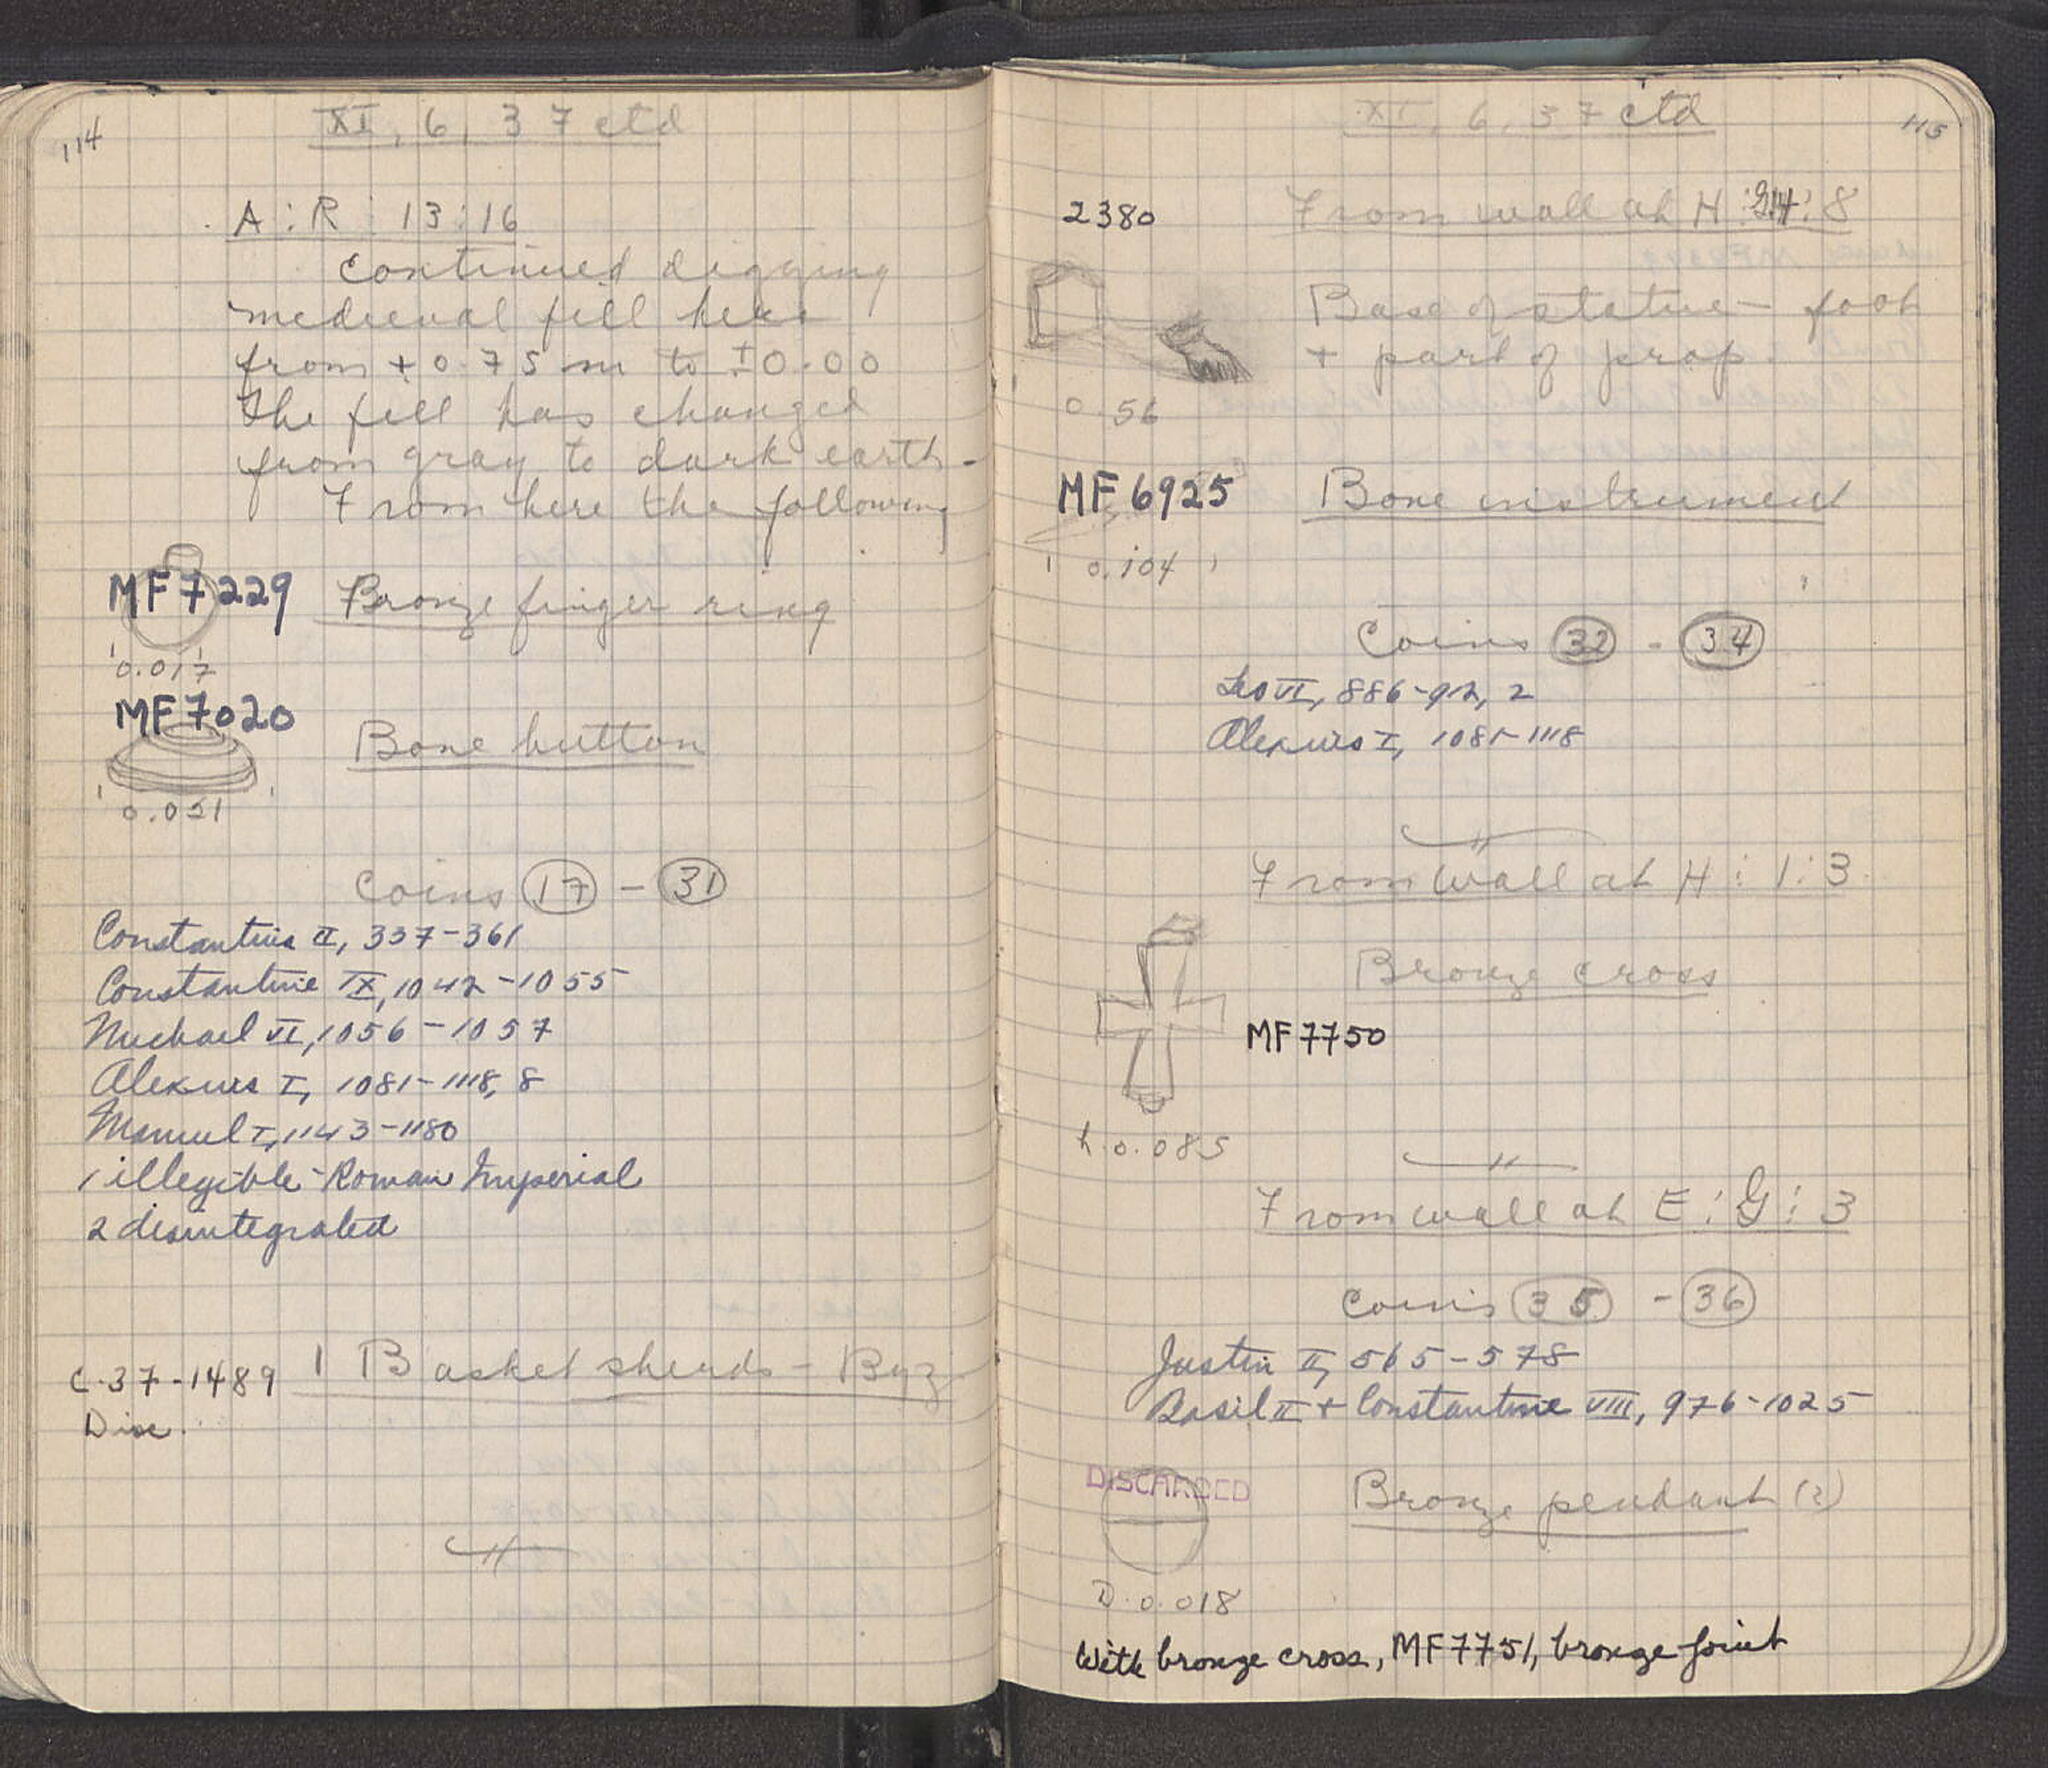 114
XI, 6, 37 ctd
A:R:13:16
continued digging
medieval fill here
from +0.75 m to ±0.00
The fill has changed
from gray to dark earth.
From here the following
MF7229 Bronze finger ring
0.017
MF7020
Bone button
0.021
Coins 17 - 31
Constantius II, 337-361
Constantine IX, 1042-1055
Michael VI, 1056-1057
Alexius I, 1081-1118, 8
Manuel I, 1143-1180
1 illegible-Roman Imperial
2 disintegrated
C-37-1489 1 Basket sherds - Byz
Disc.
XI, 6, 37 ctd
115
2380
From wall at H: :8
Base of statue - foot
+ part of prop.
0.56
MF 6925 Bone instrument
0.104
Coins 32 - 34
Leo VI, 886-92, 2
Alexius I, 1081-1118
From wall at H:1:3
Bronze cross
MF7750
h.0.085
From wall at E:G:3
Coins 35 - 36
Justin II, 565-578
Basil II + Constantine VIII, 976-1025
DISCARDED
Bronze pendant (?)
D.0.018
With bronze cross, MF7751, bronze joint